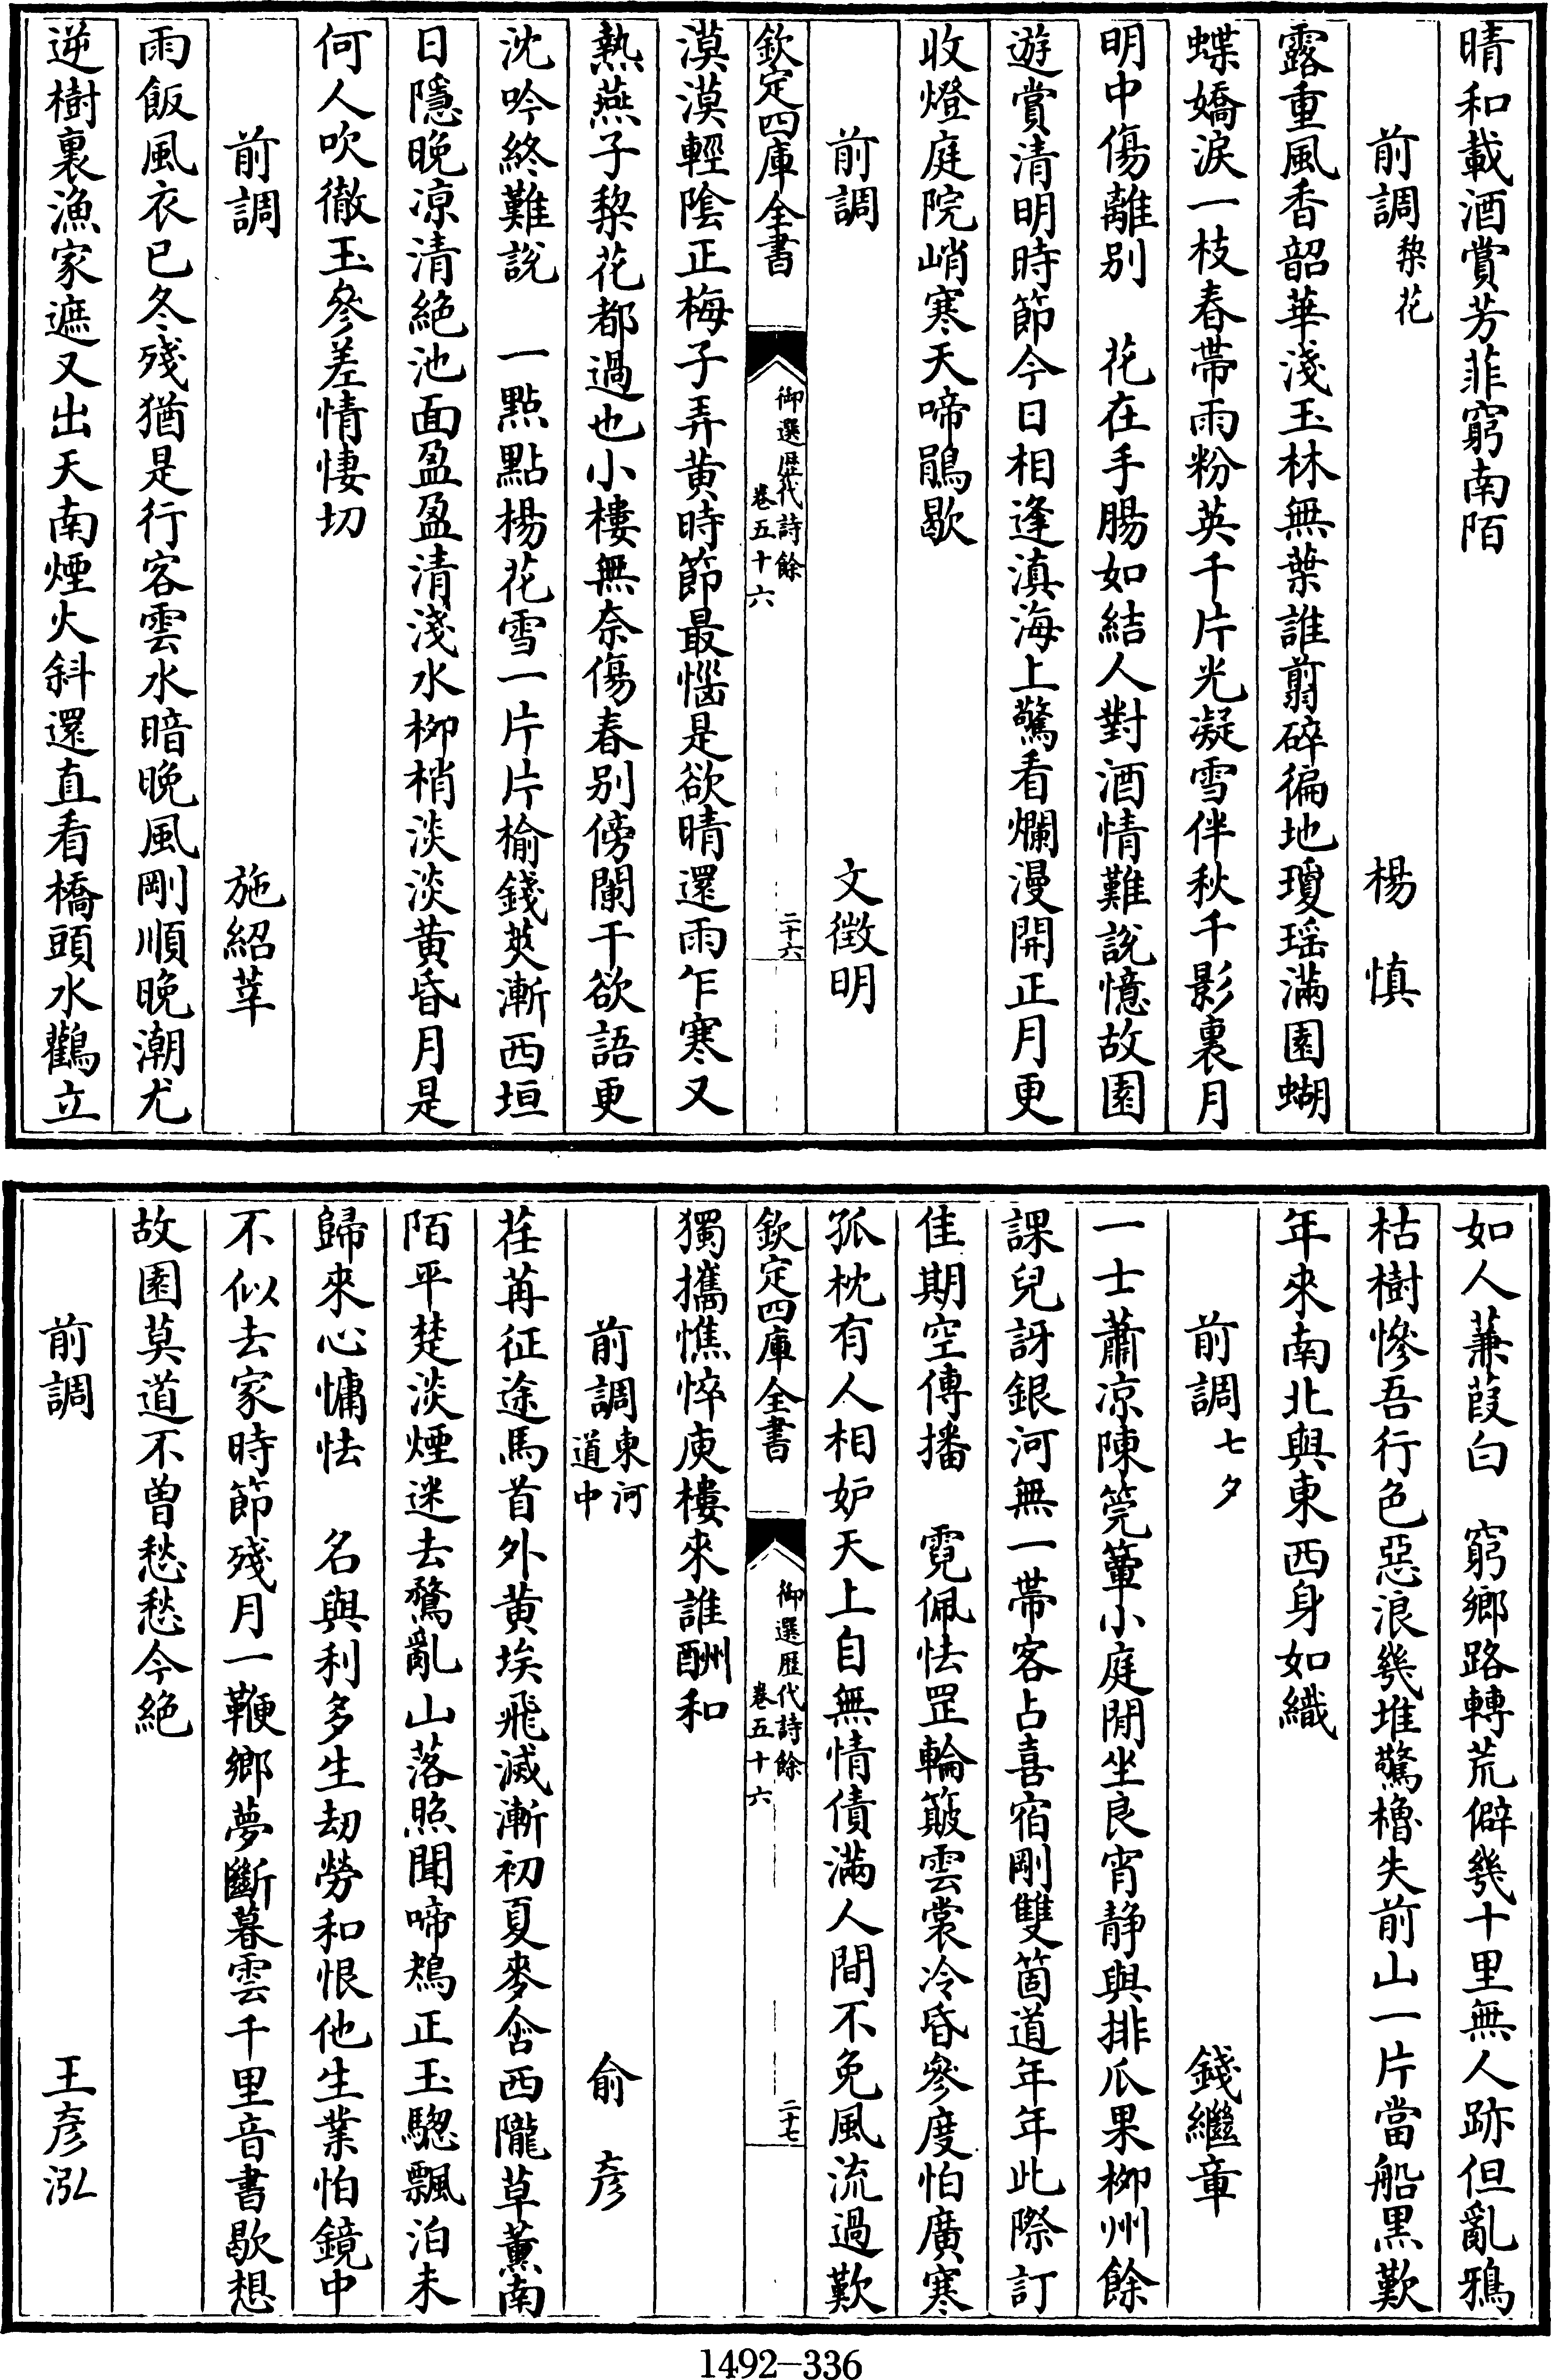 晴和載酒賞芳菲窮南陌
前調 棃花　楊慎
露重風香韶華淺玉林無葉誰翦碎徧地瓊瑶滿園蝴
蝶嬌淚一枝春帶雨粉英千片光凝雪伴秋千影裏月
明中傷離别　花在手腸如結人對酒情難說憶故園
遊賞清明時節今日相逢滇海上驚看爛漫開正月更
收燈庭院峭寒天啼鵑歇
前調　文徵明
欽定四庫全書　御選歴代詩餘 卷五十六　二十六
漠漠輕陰正梅子弄黄時節最惱是欲晴還雨乍寒又
熱燕子棃花都過也小樓無奈傷春别傍闌干欲語更
沈吟終難說　一點點楊花雪一片片榆錢莢漸西垣
日隱晚凉清絶池面盈盈清淺水栁梢淡淡黄昏月是
何人吹徹玉參差情悽切
前調　施紹莘
雨飯風衣已冬殘猶是行客雲水暗晚風剛順晚潮尤
逆樹裏漁家遮又出天南煙火斜還直看橋頭水鸛立
如人蒹葭白　窮鄉路轉荒僻幾十里無人跡但亂鴉
枯樹慘吾行色惡浪幾堆驚櫓失前山一片當船黑歎
年來南北與東西身如織
前調 七夕　錢繼章
一士蕭凉陳筦簟小庭閒坐良宵静與排瓜果栁州餘
課兒訝銀河無一帶客占喜宿剛雙箇道年年此際訂
佳期空傳播　霓佩怯罡輪簸雲裳冷昏參度怕廣寒
孤枕有人相妒天上自無情債滿人間不免風流過歎
欽定四庫全書　御選歴代詩餘 卷五十六　二十七
獨攜憔悴庾樓來誰酬和
前調 東河道中　俞彥
荏苒征途馬首外黄埃飛滅漸初夏麥含西隴草薰南
陌平楚淡煙迷去鶩亂山落照聞啼鴂正玉驄飄泊未
歸來心慵怯　名與利多生刧勞和恨他生業怕鏡中
不似去家時節殘月一鞭鄉夢斷暮雲千里音書歇想
故園莫道不曽愁愁今絶
前調　王彥泓
1492-336